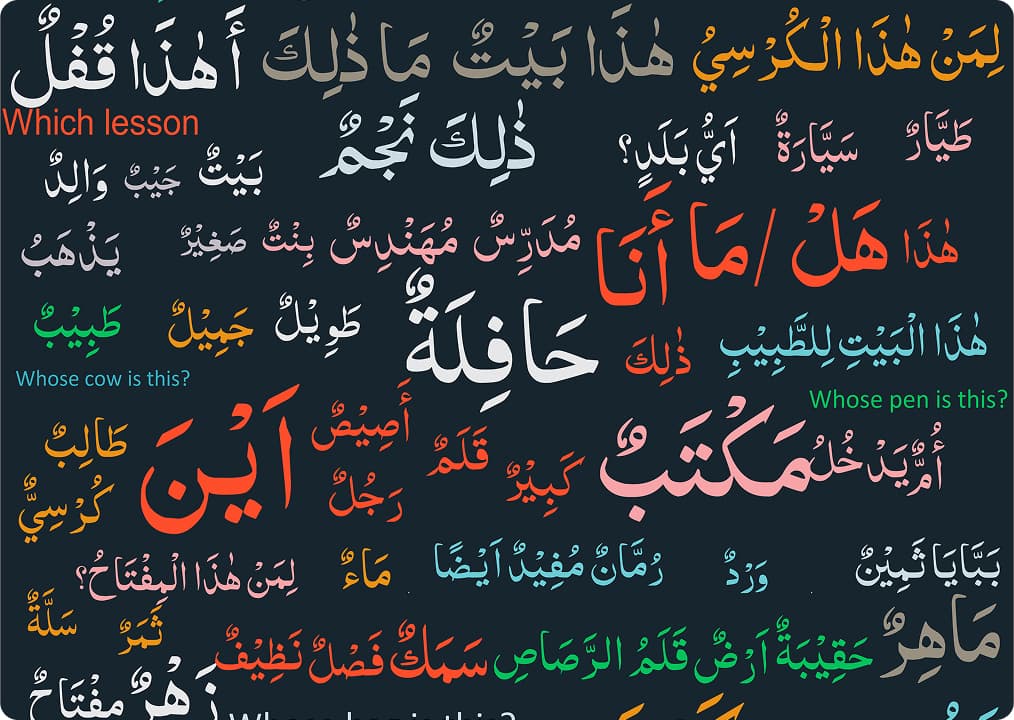 لِمَنْ هٰذَا الْكُرْسِي هٰذَا بَيْتٌ مَا ذٰلِكَ أَهٰذَا قُفْلٌ
Which lesson
طَيَّارٌ سَيَّارَةٌ اَيُّ بَلَدٍ؟ ذٰلِكَ نَجْمٌ
بَيْتٌ جَيْبٌ وَالِدٌ
هٰذَا هَلْ / مَا أَنَا مُدَرِّسٌ مُهَنْدِسٌ بِنْتٌ صَغِيْرٌ يَذْهَبُ
هٰذَا الْبَيْتِ لِلطَّبِيْبِ ذٰلِكَ حَافِلَةٌ طَوِيْلٌ جَمِيْلٌ طَبِيْبٌ
Whose cow is this?
Whose pen is this?
أُمٌّ يَدْخُلُ مَكْتَبٌ كَبِيْرٌ قَلَمٌ أَصِيْصٌ اَيْنَ طَالِبٌ
رَجُلٌ كُرْسِيٌّ
بَبَّايَا ثَمِيْنٌ وَرْدٌ رُمَّانٌ مُفِيْدٌ اَيْضًا مَاءٌ لِمَنْ هٰذَا الْمِفْتَاحُ؟
مَاهِرٌ حَقِيْبَةٌ اَرْضٌ قَلَمُ الرَّصَاصِ سَمَكٌ فَصْلٌ نَظِيْفٌ ثَمَرٌ سَلَّةٌ
زَهْرٌ مِفْتَاحٌ